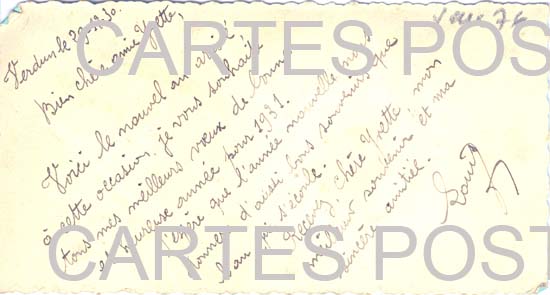 Verdun le 29-12-30
Bien chère amie Yvette,
Voici le nouvel an arrivé
à cette occasion, je vous souhaite
tous mes meilleurs vœux de bonne
et heureuse année pour 1931.
J'espère que l'année nouvelle nous
donnera d'aussi bons souvenirs que
l'an qui s'écoule.
Recevez, Chère Yvette, mon
meilleur souvenir et ma
sincère amitié.
Louis
76
CARTES POST
CARTES POST